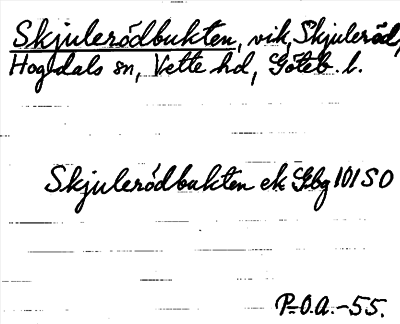 Skjulerödbukten, vik, Skjuleröd,
Hogdals sn, Vette hd, Göteb. l.
Skjulerödbukten ek Gbg 101 SO
P-O.A.-55.